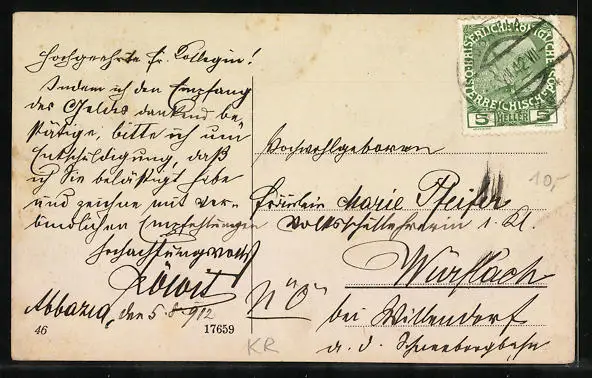 Hochgeehrte Fr. Kollegin!
Indem ich den Empfang
des Geldes dankend be-
stätige, bitte ich um
Entschuldigung, daß
ich Sie belästigt habe
und zeichne mit ver-
bindlichen Empfehlungen
hochachtungsvoll
Abbazia, den 5. 8. 912
46
17659
KAISERLICHE KÖNIGLICHE
ÖSTERREICHISCHE POST
5 HELLER 5
12
Hochwohlgeboren
Fräulein Marie Pfeifer
Volksschullehrerin 1. Kl.
Würflach
N.Ö.
bei Willendorf
a. d. Schneebergbahn
10,-
KR